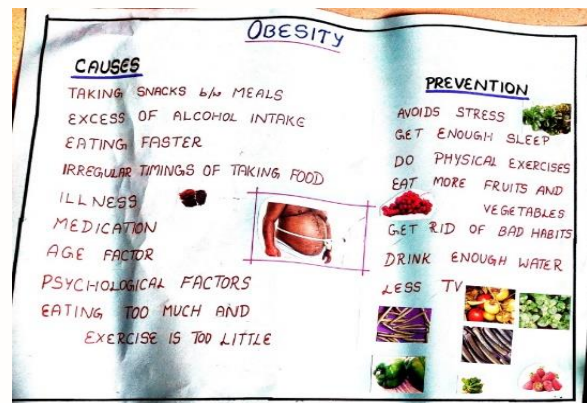 OBESITY
CAUSES
TAKING SNACKS b/w MEALS
EXCESS OF ALCOHOL INTAKE
EATING FASTER
IRREGULAR TIMINGS OF TAKING FOOD
ILLNESS
MEDICATION
AGE FACTOR
PSYCHOLOGICAL FACTORS
EATING TOO MUCH AND
EXERCISE IS TOO LITTLE
PREVENTION
AVOIDS STRESS
GET ENOUGH SLEEP
DO PHYSICAL EXERCISES
EAT MORE FRUITS AND
VEGETABLES
GET RID OF BAD HABITS
DRINK ENOUGH WATER
LESS TV